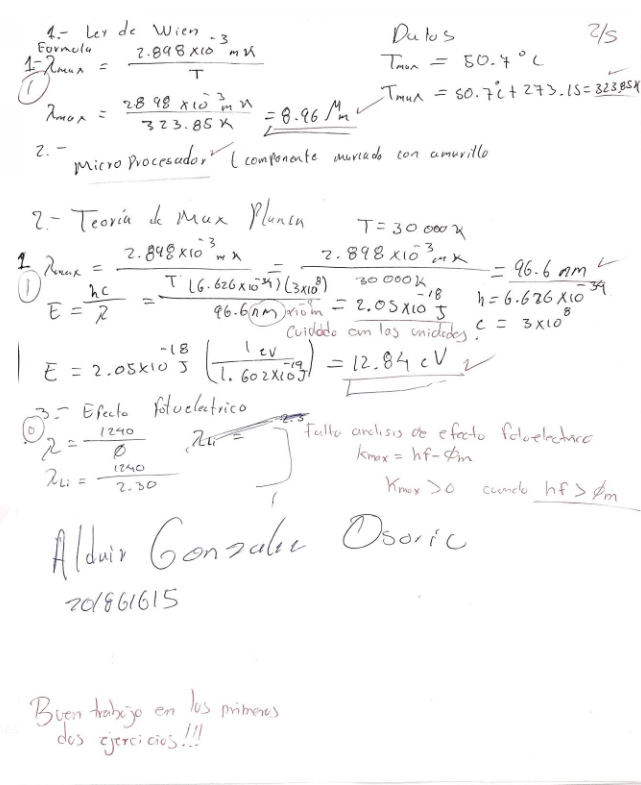 1.- Ley de Wien
Datos
2/5
Formula
1- λmax = 2.898x10^-3 m K / T
Tmax = 50.7°C
1
Tmax = 50.7°C + 273.15 = 323.85K
λmax = 2898 x10^-3 m K / 323.85K = 8.96 μm
2.-
Micro Procesador (componente marcado con amarillo
2.- Teoría de Max Planck
T = 30 000 K
1 λmax = 2.898x10^-3 m K / T = 2.898x10^-3 m K / 30 000K = 96.6 nm
1
E = hc / λ = (6.626x10^-34)(3x10^8) / 96.6 nm x10^-9 m = 2.05x10^-18 J
h = 6.626x10^-34
Cuidado con las unidades.
c = 3x10^8
E = 2.05x10^-18 J (1 eV / 1.602x10^-19 J) = 12.84 eV
3.- Efecto fotoelectrico
0
λ = 1240 / ϕ
λLi =
Falta analisis de efecto fotoelectrico
Kmax = hf - ϕm
λLi = 1240 / 2.30
Kmax > 0 cuando hf > ϕm
Alduir Gonzalez Osorio
201861615
Buen trabajo en los primeros
dos ejercicios!!!